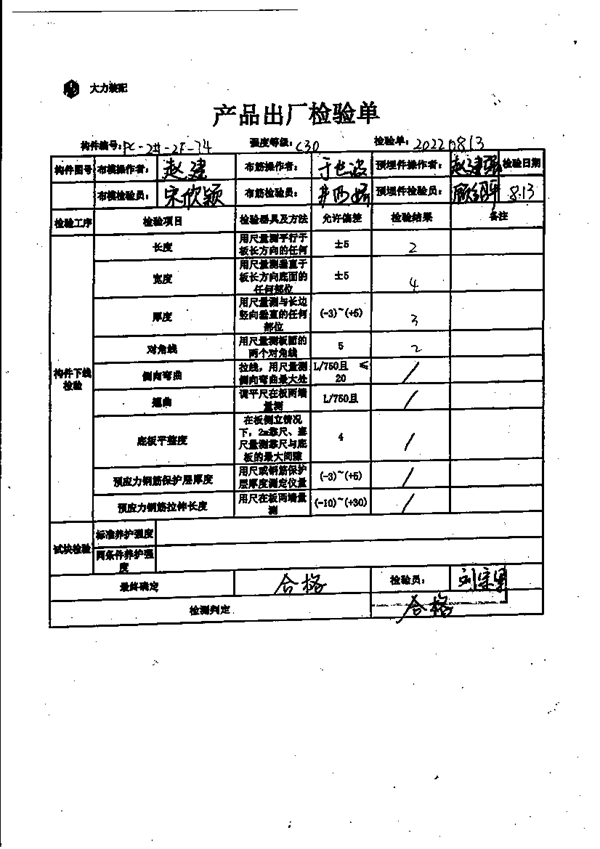 大力装配
产品出厂检验单
构件编号: PC-2#-2F-74 强度等级: C30 检验单: 20220813
构件图号 布模操作者: 赵建 布筋操作者: 预埋件操作者: 赵建强 检验日期
布模检验员: 宋欣颖 布筋检验员: 预埋件检验员: 8.13
检验工序 检验项目 检验器具及方法 允许偏差 检验结果 备注
构件下线检验
长度 用尺量测平行于板长方向的任何 ±5 2
宽度 用尺量测垂直于板长方向底面的任何部位 ±5 4
厚度 用尺量测与长边竖向垂直的任何部位 (-3)~(+5) 3
对角线 用尺量测板面的两个对角线 5 2
侧向弯曲 拉线，用尺量测侧向弯曲最大处 L/750且 ≤20 /
翘曲 调平尺在板两端量测 L/750且 /
底板平整度 在板侧立情况下，2m靠尺、塞尺量测靠尺与底板的最大间隙 4 /
预应力钢筋保护层厚度 用尺或钢筋保护层厚度测定仪量 (-3)~(+5) /
预应力钢筋拉伸长度 用尺在板两端量测 (-10)~(+30) /
试块检验 标准养护强度
同条件养护强度
最终确定 合格 检验员:
检测判定 合格